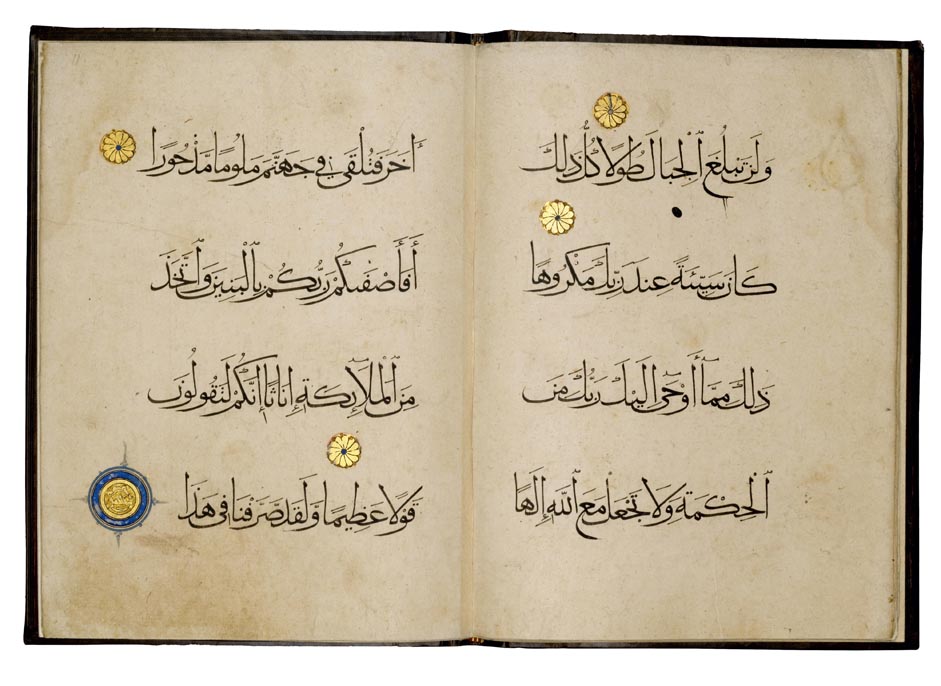 وَلَن تَبْلُغَ ٱلْجِبَالَ طُولًا كُلُّ ذَٰلِكَ
كَانَ سَيِّئَةً عِندَ رَبِّكَ مَكْرُوهًا
ذَٰلِكَ مِمَّآ أَوْحَىٰٓ إِلَيْكَ رَبُّكَ مِنَ
ٱلْحِكْمَةِ وَلَا تَجْعَلْ مَعَ ٱللَّهِ إِلَٰهًا
ءَاخَرَ فَتُلْقَىٰ فِي جَهَنَّمَ مَلُومًا مَّدْحُورًا
أَفَأَصْفَىٰكُمْ رَبُّكُم بِٱلْبَنِينَ وَٱتَّخَذَ
مِنَ ٱلْمَلَٰٓئِكَةِ إِنَٰثًا إِنَّكُمْ لَتَقُولُونَ
قَوْلًا عَظِيمًا وَلَقَدْ صَرَّفْنَا فِي هَٰذَا